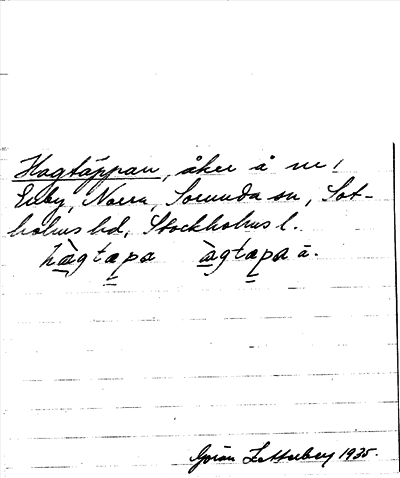 Hagtäppan, åker å nr 1
Enby, Norra, Sorunda sn, Sot-
holms hd, Stockholms l.
hàgtæpa àgtæpa ä.
Göran Zetterberg 1935.